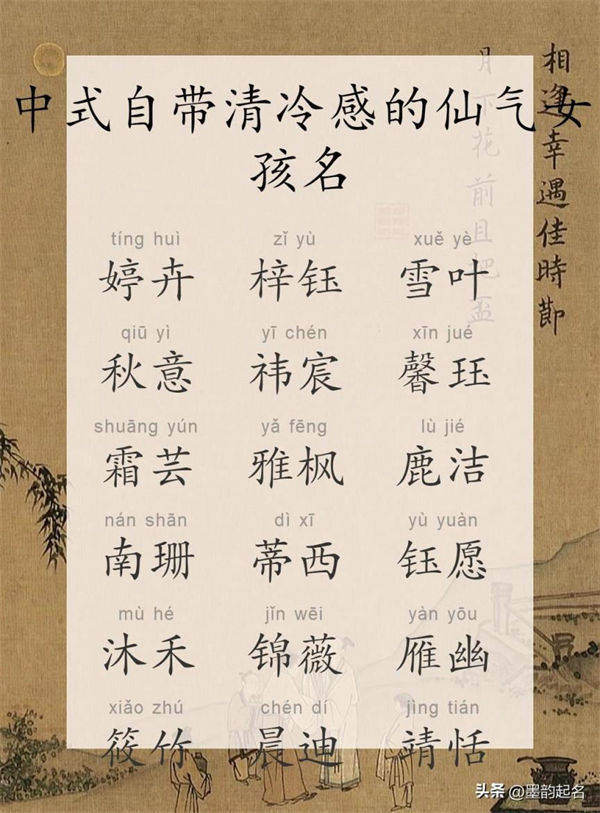 相逢幸遇佳時節
月下花前且把盃
中式自带清冷感的仙气女
孩名
tíng huì zǐ yù xuě yè
婷卉 梓钰 雪叶
qiū yì yī chén xīn jué
秋意 祎宸 馨珏
shuāng yún yǎ fēng lù jié
霜芸 雅枫 鹿洁
nán shān dì xī yù yuàn
南珊 蒂西 钰愿
mù hé jǐn wēi yàn yōu
沐禾 锦薇 雁幽
xiǎo zhú chén dí jìng tián
筱竹 晨迪 靖恬
头条 @墨韵起名